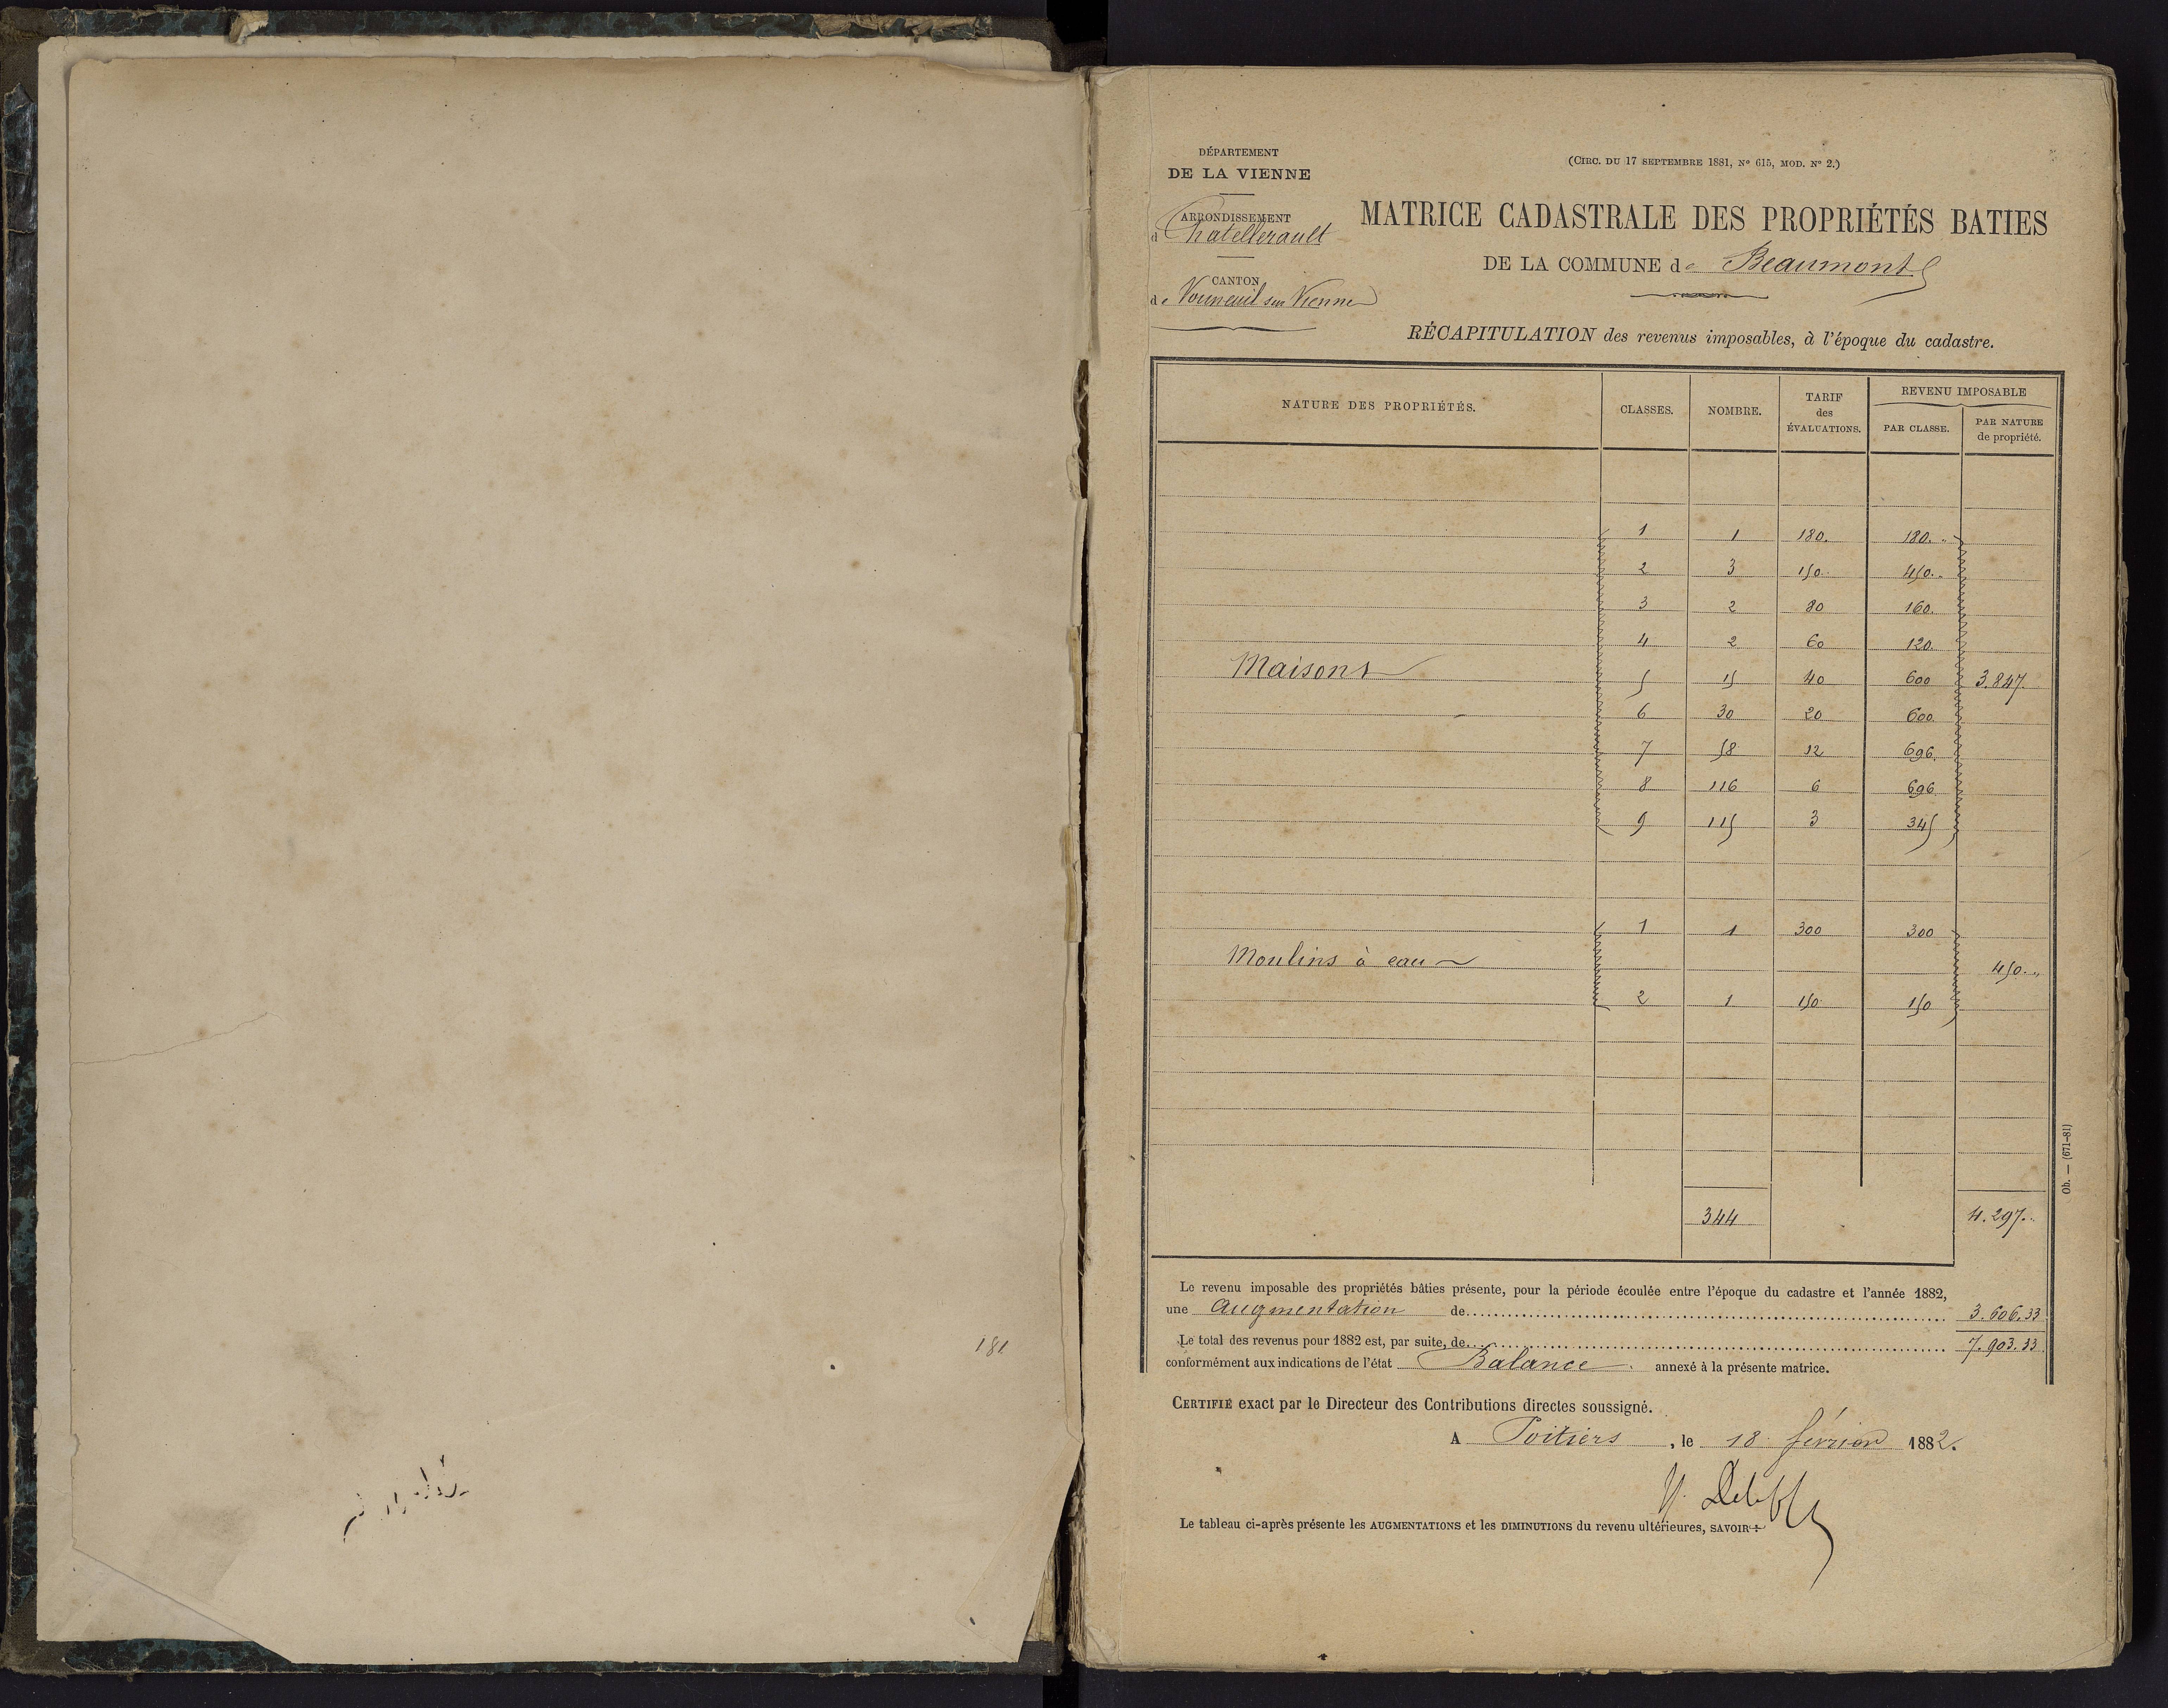 181
DÉPARTEMENT
DE LA VIENNE
ARRONDISSEMENT
d Chatellerault
CANTON
de Vouneuil sur Vienne
(CIRC. DU 17 SEPTEMBRE 1881, N° 615, MOD. N° 2.)
MATRICE CADASTRALE DES PROPRIÉTÉS BATIES
DE LA COMMUNE de Beaumont
RÉCAPITULATION des revenus imposables, à l'époque du cadastre.
NATURE DES PROPRIÉTÉS. CLASSES. NOMBRE. TARIF des ÉVALUATIONS. REVENU IMPOSABLE
PAR CLASSE. PAR NATURE de propriété.
1 1 180. 180.
2 3 150. 450.
3 2 80 160.
4 2 60 120.
Maisons 5 15 40 600 3.847.
6 30 20 600
7 58 12 696.
8 116 6 696
9 115 3 345
1 1 300 300
Moulins à eau 450.
2 1 150 150
344 4.297.
Le revenu imposable des propriétés bâties présente, pour la période écoulée entre l'époque du cadastre et l'année 1882,
une Augmentation de 3.606,33
Le total des revenus pour 1882 est, par suite, de 7.903.33
conformément aux indications de l'état Balance annexé à la présente matrice.
CERTIFIÉ exact par le Directeur des Contributions directes soussigné.
A Poitiers, le 18 février 1882.
Le tableau ci-après présente les AUGMENTATIONS et les DIMINUTIONS du revenu ultérieures, SAVOIR :
Ob. — (671-81)